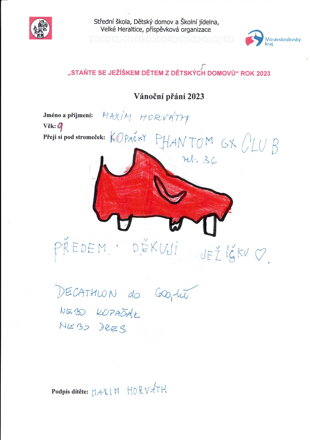 Střední škola, Dětský domov a Školní jídelna,
Velké Heraltice, příspěvková organizace
Moravskoslezský
kraj
„STAŇTE SE JEŽÍŠKEM DĚTEM Z DĚTSKÝCH DOMOVŮ" ROK 2023
Vánoční přání 2023
Jméno a příjmení: MAXIM HORVÁTH
Věk: 9
Přeji si pod stromeček: KOPAČKY PHANTOM GX CLUB
vel. 36
PŘEDEM DĚKUJI JEŽÍŠKU
DECATHLON do
NEBO KOPAČÁK
NEBO DRES
Podpis dítěte: MAXIM HORVÁTH